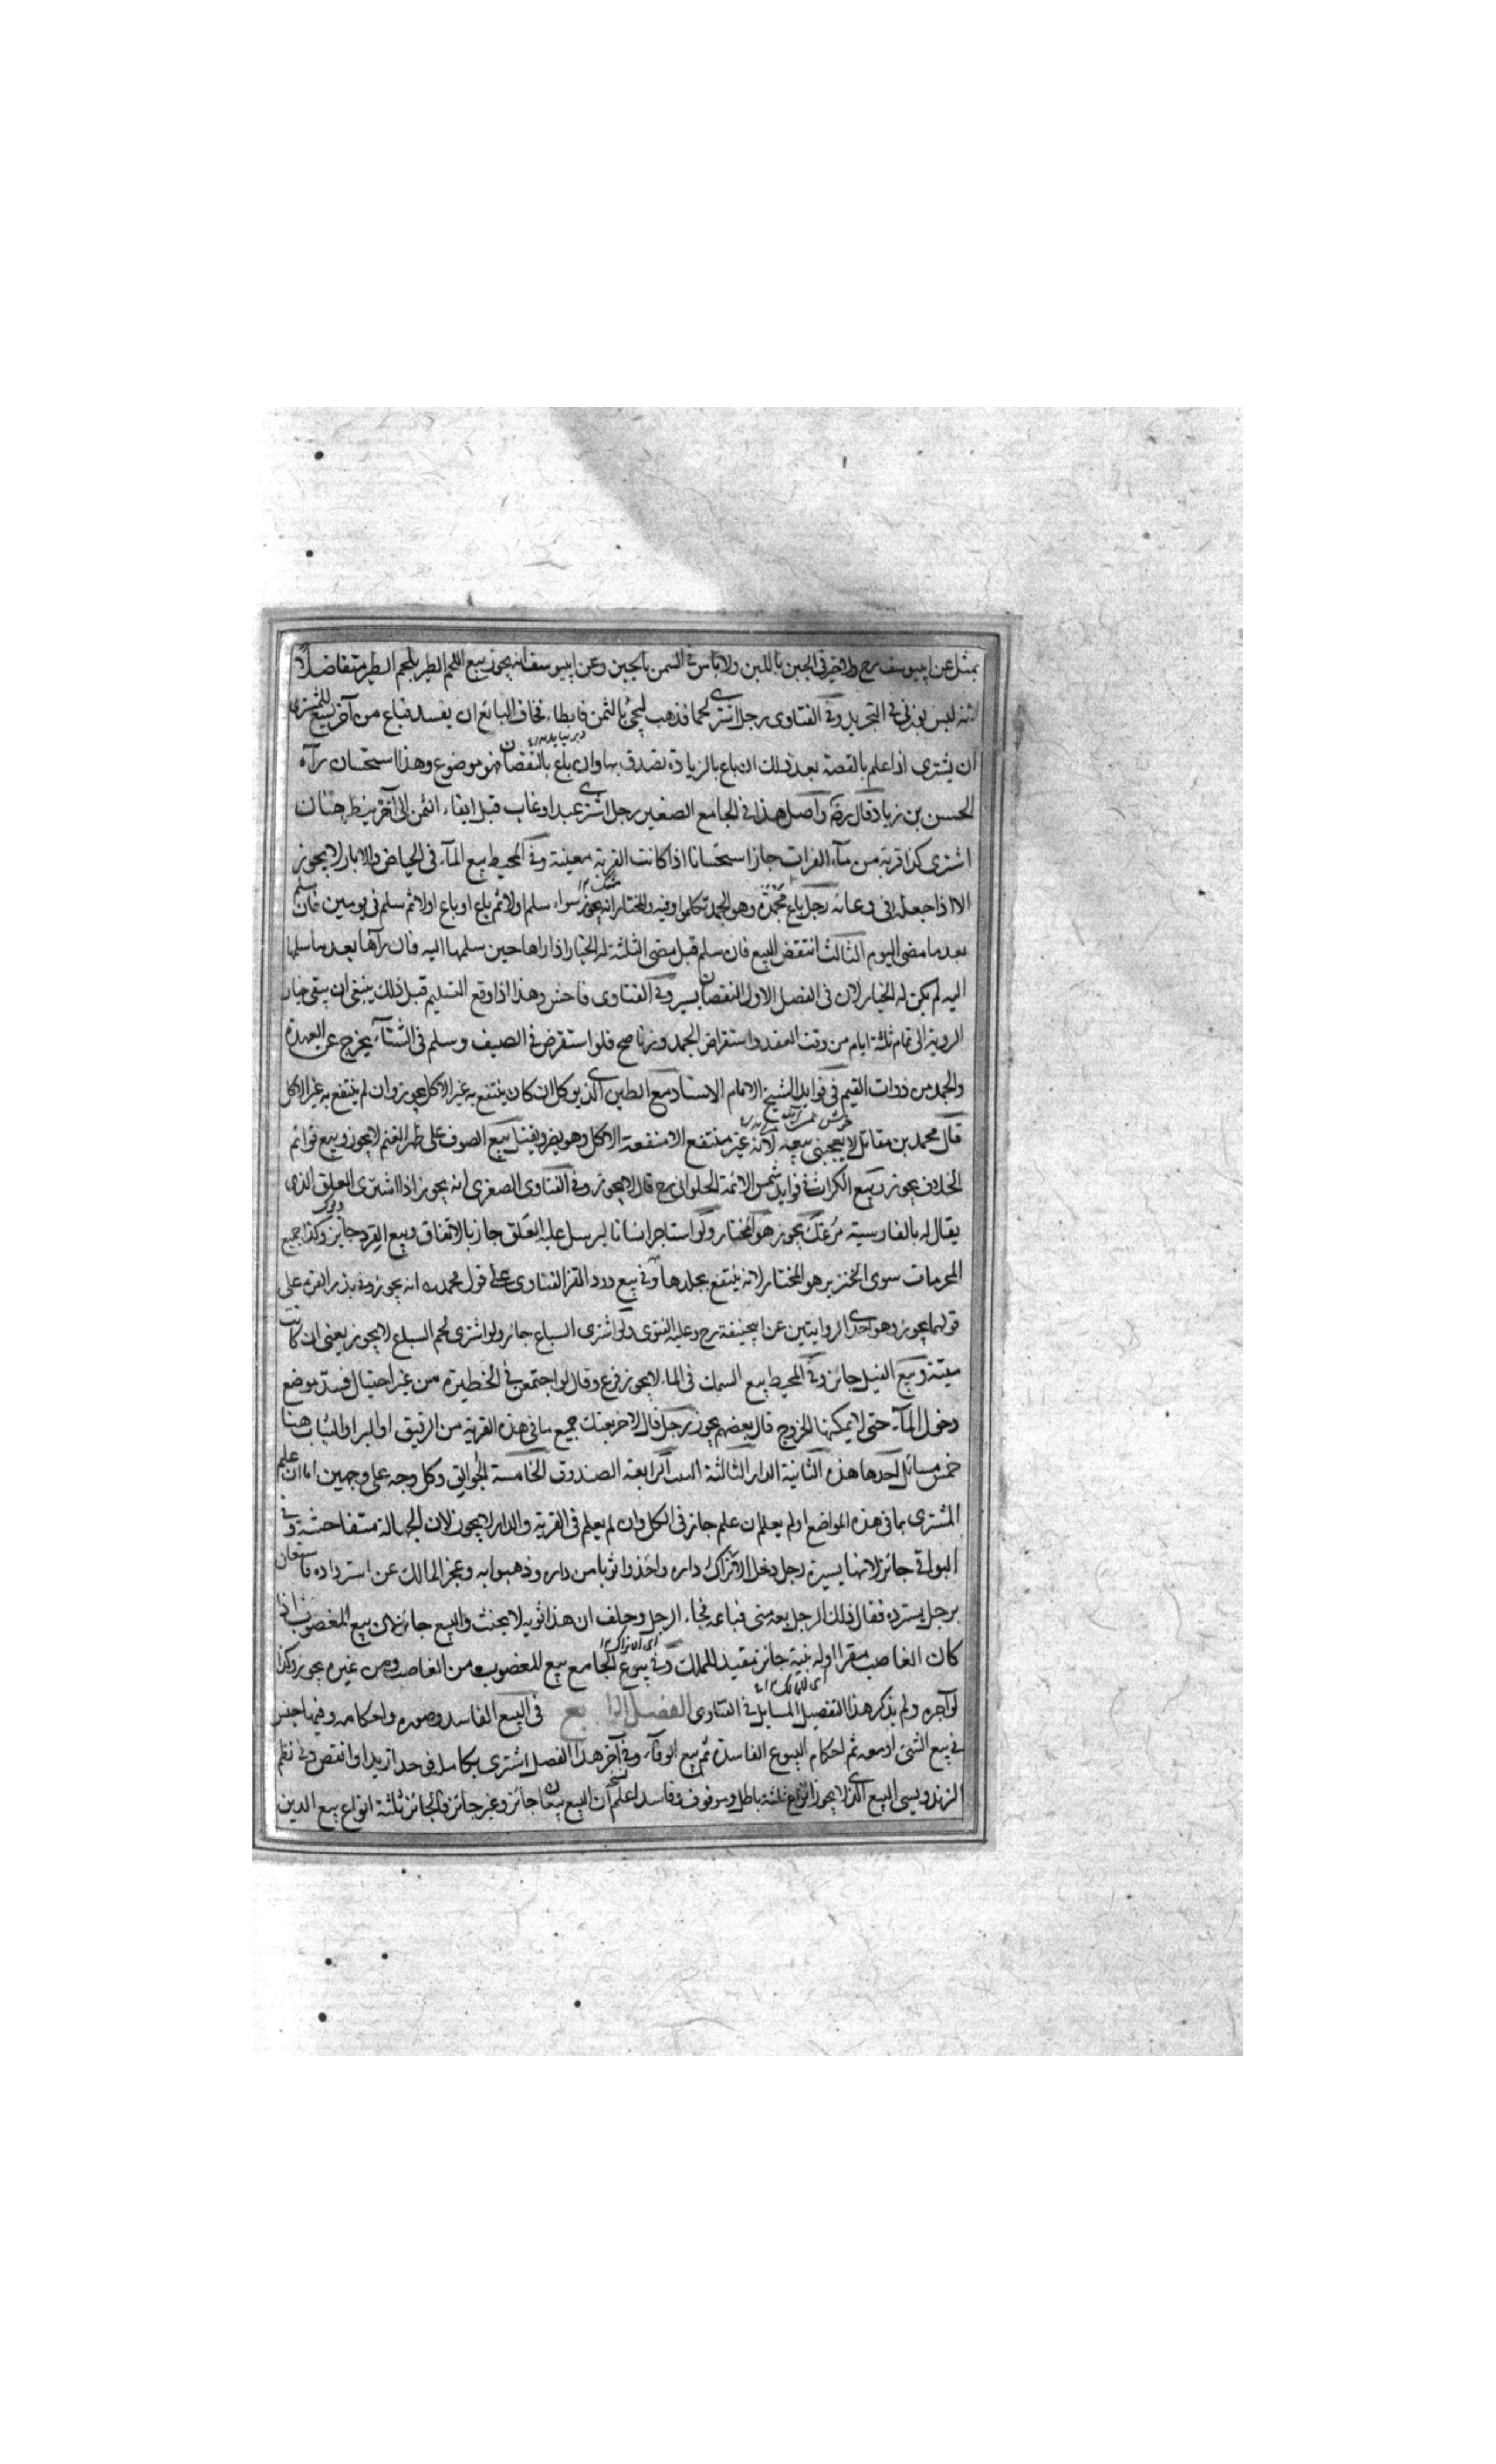 بمثل عن ابييوسف رح ولا خير فى الجبن باللبن ولا باس فى السمن بالجبن وعن ابييوسف انه يجوز بيع اللحم الطير بلحم الطير متفاضلا
لانه ليس بوزنى فى التجريد وفى الفتاوى رجل اشترى لحما فذهب ليجئ بالثمن فابطاء فخاف البائع ان يفسد فباع من آخر يسع للمشترى
ان يشترى اذا علم بالقصة بعد ذلك ان باع بالزيادة تصدق بها وان باع بالنقصان فهو موضوع وهذا استحسان رآه
الحسن بن زياد قال رضه واصل هذا فى الجامع الصغير رجل اشترى عبدا وغاب قبل ايفاء الثمن الى آخره ينظر هنان
اشترى كذا قربة من ماء الفرات جاز استحسانا اذا كانت القربة معينة وفى المحيط بيع المآء فى الحياض والابار لا يجوز
الا اذا جعله فى وعائه رجل باع مجمدة وهو الجمد تكلموا فيه والمختار انه يجوز سواء سلم اولا ثم باع او باع اولا ثم سلم فى يومين فان سلم
بعد ما مضى اليوم الثالث انتقض البيع فان سلم قبل مضى الثلثة له الخيار اذا راها حين سلمها اليه فان رآها بعد ما سلمها
اليه لم يكن له الخيار لان فى الفصل الاول النقصان يسير وفى الفتاوى فاحش وهذا اذا وقع التسليم قبل ذلك ينبغى ان يبقى خيار
الروية الى تمام ثلثة ايام من وقت العقد واستقراض الجمد وزنا صح فلو استقرض فى الصيف وسلم فى الشتآء يخرج عن العهدة
والجمد من ذوات القيم فى فوايد الشيخ الامام الاستاد مع الطين الذى يوكل ان كان ينتفع به غير الاكل يجوز وان لم ينتفع به غير الاكل
قال محمد بن مقاتل لا يعجبنى بيعه لانه غير منتفع الا منفعة الاكل وهو يضر ويقتل بيع الصوف على ظهر الغنم لا يجوز وبيع قوائم
الخلاف يجوز وبيع الكراث فى فوايد شمس الائمة الحلوانى رح قال لا يجوز وفى الفتاوى الصغرى انه يجوز اذا اشترى العلق الذى
يقال له بالفارسية مرعك يجوز هو المختار ولو استاجر انسانا ليرسل عليه العلق جاز بالاتفاق وبيع القرد جائز وكذا جميع
المحرمات سوى الخنزير هو المختار لانه ينتفع بجلدها وفى بيع دود القز الفتاوى على قول محمد انه يجوز وفى بذر القز على
قولهما يجوز وهو احدى الروايتين عن ابيحنيفة رح وعليه الفتوى ولو اشترى السباع جائز ولو اشترى لحم السباع لا يجوز يعنى ان كانت
ميتة وبيع الفيل جائز وفى المحيط بيع السمك فى الماء لا يجوز فرع وقال لو اجتمعن فى الحظيرة من غير احتيال فسد موضع
دخول المآء حتى لا يمكنها الخروج قال بعضهم يجوز رجل قال لاخر بعتك جميع ما فى هذه القرية من الرقيق او البر او الثياب هنا
خمس مسائل احدها هذه الثانية الدار الثالثة البيت الرابعة الصندوق الخامسة الجوالق وكل وجه على وجهين اما ان علم
المشترى بما فى هذه المواضع او لم يعلم ان علم جاز فى الكل وان لم يعلم فى القرية والدار لا يجوز لان الجهالة متفاحشة وفى
البواقى جائز لانها يسيرة رجل دخل الاتراك داره واخذوا ثوبا من داره وذهبوا به وعجز المالك عن استرداده فاستعان
برجل يسترده فقال ذلك الرجل بعه منى فباعه فجاء الرجل وحلف ان هذا ثوبه لا يحنث والبيع جائز لان بيع المغصوب اذا
كان الغاصب مقرا او له بينة جائز مفيد للملك وفى بيوع الجامع بيع المغصوب من الغاصب ومن غيره يجوز وكذا
لو آجره ولم يذكر هذا التفصيل المسايل فى الفتاوى الفصل الرابع فى البيع الفاسد وصوره واحكامه وفيها جنس
فى بيع الشئ او معه ثم احكام البيوع الفاسدة ثم بيع الوفآء وفى آخر هذا الفصل اشترى بكامل فوجد ازيد او انقص وفى نظم
الزندويسى البيع الذى لا يجوز انواع ثلثة باطل وموقوف وفاسد اعلم ان البيع بيعان جائز وغير جائز فالجائز ثلثة انواع بيع الدين